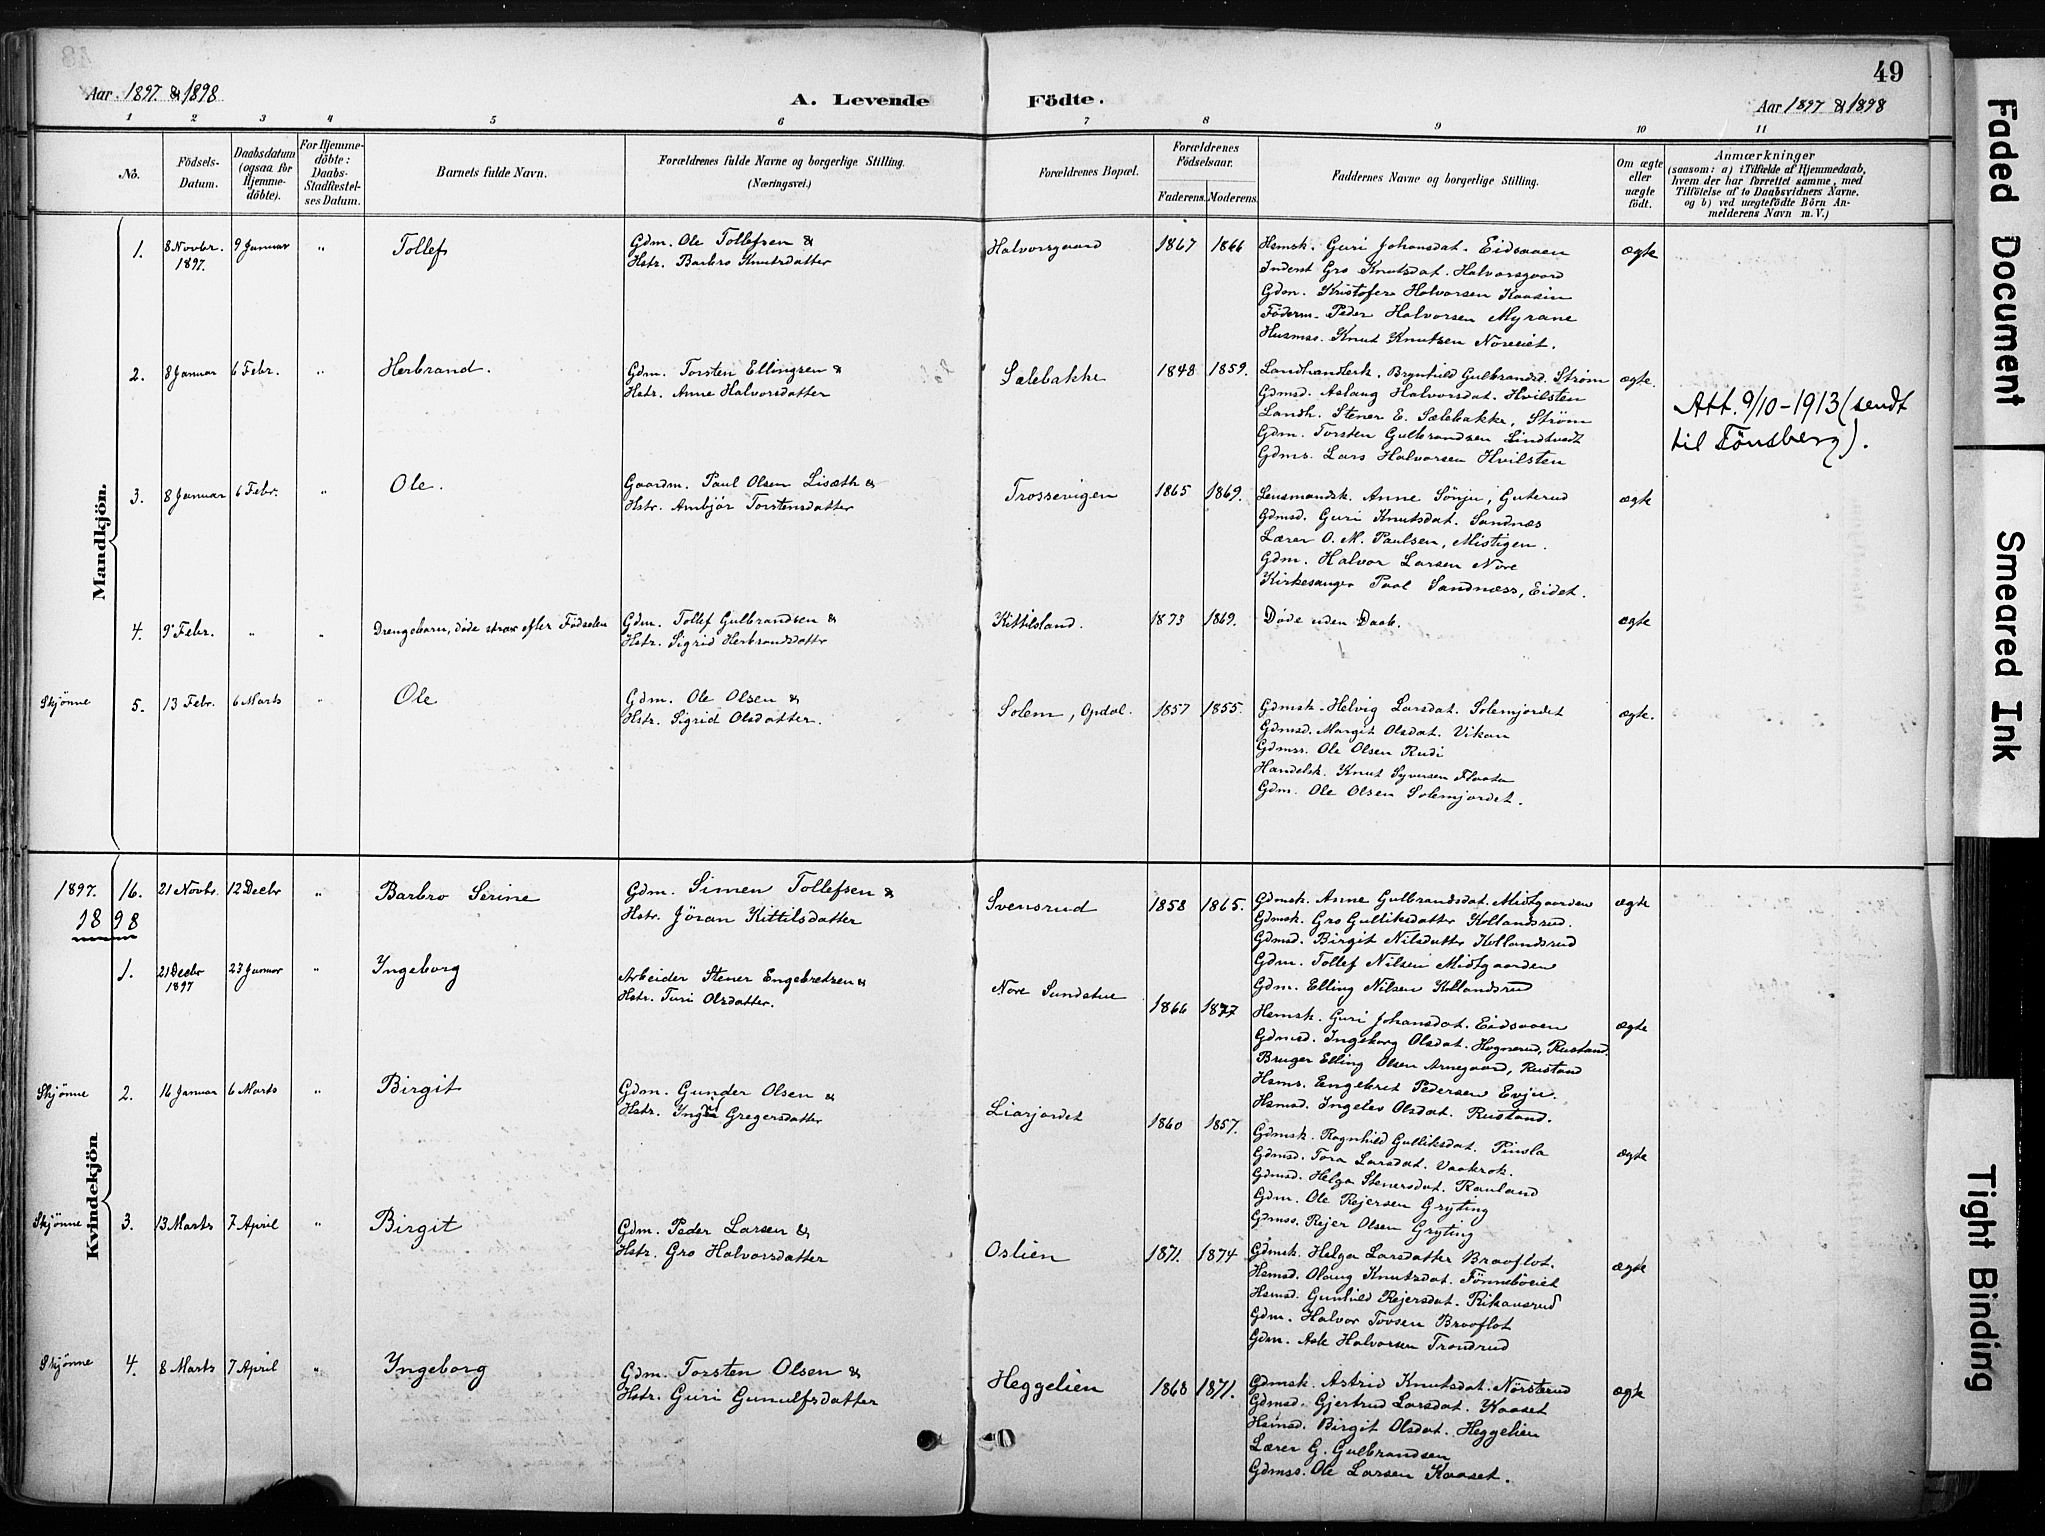 49
Aar 1897 & 1898
A. Levende Födte.
Aar 1897 & 1898
1 2 3 4 5 6 7 8 9 10 11
No.
Födsels-
Datum.
Daabsdatum
(ogsaa for
Hjemme-
döbte).
For Hjemme-
döbte:
Daabs-
Stadfæstel-
ses Datum.
Barnets fulde Navn.
Forældrenes fulde Navne og borgerlige Stilling.
(Næringsvei.)
Forældrenes Bopæl.
Forældrenes
Födselsaar.
Faderens. Moderens.
Faddernes Navne og borgerlige Stilling.
Om ægte
eller
uægte
födt.
Anmærkninger
(saasom: a) i Tilfælde af Hjemmedaab,
hvem der har forrettet samme, med
Tilföielse af to Daabsvidners Navne,
og b) ved uægtefödte Börn An-
melderens Navn m. V.)
Mandkjön.
1. 8 Novbr. 1897. 9 Januar " Tollef
Gdm. Ole Tollefsen &
Hstr. Barbro Knutsdatter
Halvorsgaard 1867 1866
Hsmsk. Guri Johansdat. Eidsaaen
Inderst Gro Knutsdat. Halvorsgaard
Gdm. Kristofer Halvorsen Kaasin
Föderm. Peder Halvorsen Myrane
Husmss. Knut Knutsen Noreeiet.
ægte
2. 8 Januar 6 Febr. " Herbrand.
Gdm. Torsten Ellingsen &
Hstr. Anne Halvorsdatter
Sælebakke 1848 1859.
Landhandlerk. Brynhild Gulbrandsd. Strøm
Gdmsd. Aslaug Halvorsdat. Hvilsten
Landh. Stener E. Sælebakke, Strøm
Gdm. Torsten Gulbrandsen Lindtvedt
Gdms. Lars Halvorsen Hvilsten
ægte.
Att. 9/10-1913 (sendt
til Tönsberg).
3. 8 Januar 6 Febr. " Ole.
Gaardm. Paul Olsen Lisæth &
Hstr. Ambjør Torstensdatter
Trossevigen 1865 1869.
Lensmandsk. Anne Sønju, Guterud
Gdmsd. Guri Knutsdat. Sandnæs
Lærer O. M. Paulsen, Mistigen.
Gdm. Halvor Larsen Nore
Kirkesanger Paal Sandnæss, Eidet.
ægte
4. 9 Febr. " " Drengebarn, døde strax efter Fødselen
Gdm. Tollef Gulbrandsen &
Hstr. Sigrid Herbrandsdattr
Kittilsland. 1873 1869. Døde uden Daab. ægte
Skjønne 5. 13 Febr. 6 Marts " Ole
Gdm. Ole Olsen &
Hstr. Sigrid Olsdatter.
Solem, Opdal. 1857 1855.
Gdmsk. Helvig Larsdat. Solemjordet
Gdmsd. Margit Olsdat. Vikan
Gdmss. Ole Olsen Rudi
Handelsk. Knut Syversen Flaata
Gdm. Ole Olsen Solemjordet.
ægte.
Kvindekjön.
1897. 16. 21 Novbr. 12 Decbr " Barbro Serine
Gdm. Simen Tollefsen &
Hstr. Jöran Kittilsdatter
Svensrud 1858 1865.
Gdmsk. Anne Gulbrandsdat. Midtgaarden
Gdmsk. Gro Gulliksdatter Kollandsrud.
Gdmsd. Birgit Nilsdatter Kollandsrud
Gdm. Tollef Nilsen Midtgaarden
Gdm. Elling Nilsen Kollandsrud
ægte
1898
1. 21 Decbr 1897 23 Januar " Ingeborg
Arbeider Stener Engebretsen &
Hstr. Turi Olsdatter.
Nore Sundstue 1866 1877
Hsmsk. Guri Johansdat. Eidsaaen
Gdmsd. Ingeborg Olsdat. Hognerud, Rustand.
Bruger Elling Olsen Arnegaard, Rustand
Hsms. Engebret Pedersen Evju.
Hsmsd. Ingelev Olsdat. Rustand.
ægte
Skjønne 2. 16 Januar 6 Marts " Birgit
Gdm. Gunder Olsen &
Hstr. Gregersdatter
Liarjordet 1860 1857.
Gdmsk. Ragnhild Gulliksdat. Pinsla
Gdmsd. Tora Larsdat. Vaakrok.
Gdmsd. Helga Stenersdat. Rauland
Gdm. Ole Rejersen Gryting
Gdmss. Rejer Olsen Gryting
ægte
Skjønne 3. 13 Marts 7 April " Birgit
Gdm. Peder Larsen &
Hstr. Gro Halvorsdatter
Oslien 1871. 1874
Gdmsk. Helga Larsdatter Braaflot.
Hsmsd. Olaug Knutsdat. Fønnebøeiet
Hsmsd. Gunhild Rejersdat. Rikansrud
Gdm. Halvor Tovsen Braaflot
Gdm. Ask Halvorsen Trondrud
ægte
Skjønne 4. 8 Marts 7 April " Ingeborg
Gdm. Torsten Olsen &
Hstr. Guri Gunulfsdatter
Heggelien 1868 1871.
Gdmsk. Astrid Knutsdat. Nørsterud
Gdmsd. Gjertrud Larsdat. Kaaset
Hsmsd. Birgit Olsdat. Heggelien
Lærer G. Gulbrandsen
Gdmss. Ole Larsen Kaaset.
ægte
Faded Document
Smeared Ink
Tight Binding